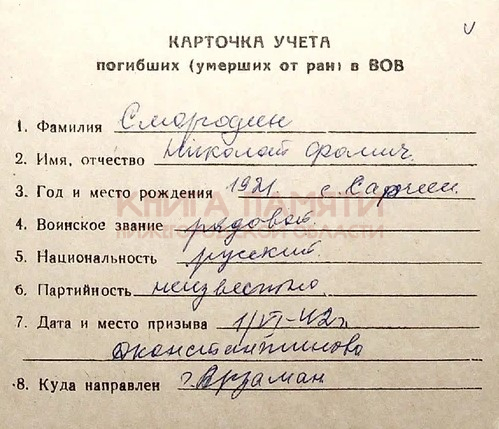 КАРТОЧКА УЧЕТА
погибших (умерших от ран) в ВОВ
1. Фамилия Смородин
2. Имя, отчество Николай Фомич.
3. Год и место рождения 1921 с.
КНИГА ПАМЯТИ
НИЖЕГОРОДСКОЙ ОБЛАСТИ
4. Воинское звание рядовой
5. Национальность русский.
6. Партийность неизвестно.
7. Дата и место призыва 1/VI-42г
Дконстантиново
8. Куда направлен г.Арзамас